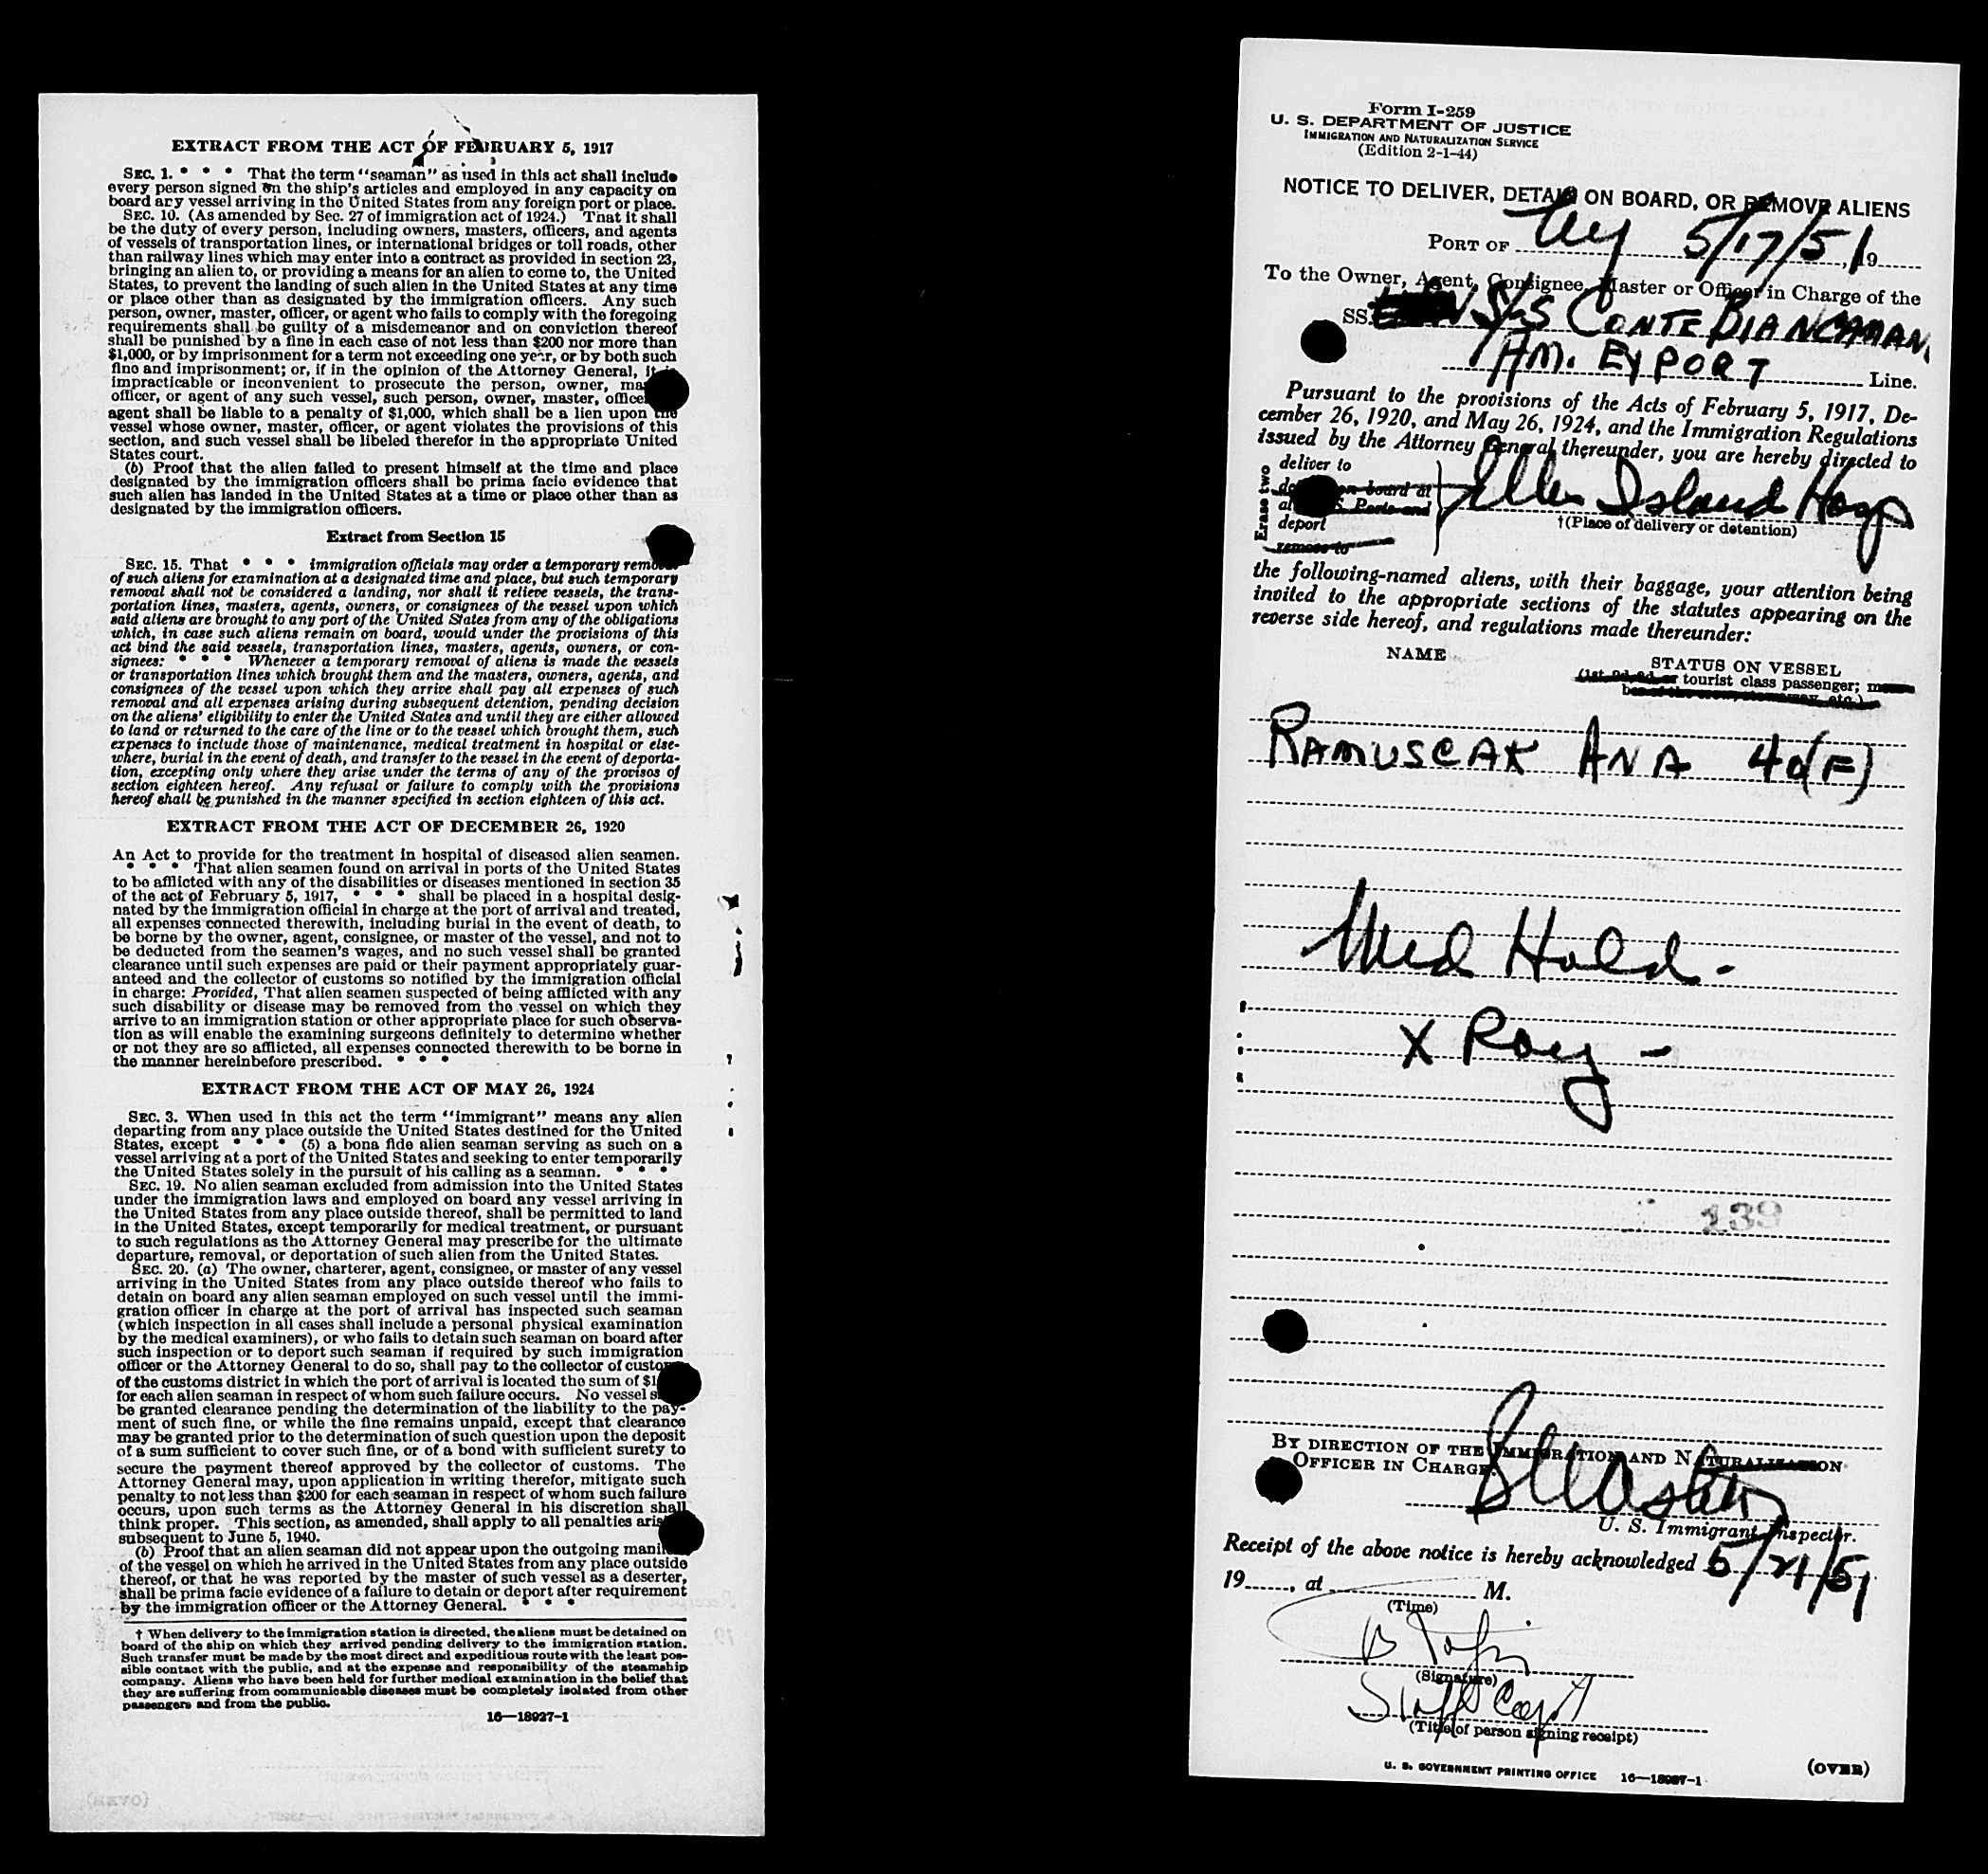 EXTRACT FROM THE ACT OF FEBRUARY 5, 1917
SEC. 1. * * * That the term "seaman" as used in this act shall include
every person signed on the ship's articles and employed in any capacity on
board any vessel arriving in the United States from any foreign port or place.
SEC. 10. (As amended by Sec. 27 of immigration act of 1924.) That it shall
be the duty of every person, including owners, masters, officers, and agents
of vessels of transportation lines, or international bridges or toll roads, other
than railway lines which may enter into a contract as provided in section 23,
bringing an alien to, or providing a means for an alien to come to, the United
States, to prevent the landing of such alien in the United States at any time
or place other than as designated by the immigration officers. Any such
person, owner, master, officer, or agent who fails to comply with the foregoing
requirements shall be guilty of a misdemeanor and on conviction thereof
shall be punished by a fine in each case of not less than $200 nor more than
$1,000, or by imprisonment for a term not exceeding one year, or by both such
fine and imprisonment; or, if in the opinion of the Attorney General, it is
impracticable or inconvenient to prosecute the person, owner, mas
officer, or agent of any such vessel, such person, owner, master, office
agent shall be liable to a penalty of $1,000, which shall be a lien upon the
vessel whose owner, master, officer, or agent violates the provisions of this
section, and such vessel shall be libeled therefor in the appropriate United
States court.
(b) Proof that the alien failed to present himself at the time and place
designated by the immigration officers shall be prima facie evidence that
such alien has landed in the United States at a time or place other than as
designated by the immigration officers.
Extract from Section 15
SEC. 15. That * * * immigration officials may order a temporary removal
of such aliens for examination at a designated time and place, but such temporary
removal shall not be considered a landing, nor shall it relieve vessels, the trans-
portation lines, masters, agents, owners, or consignees of the vessel upon which
said aliens are brought to any port of the United States from any of the obligations
which, in case such aliens remain on board, would under the provisions of this
act bind the said vessels, transportation lines, masters, agents, owners, or con-
signees: * * * Whenever a temporary removal of aliens is made the vessels
or transportation lines which brought them and the masters, owners, agents, and
consignees of the vessel upon which they arrive shall pay all expenses of such
removal and all expenses arising during subsequent detention, pending decision
on the aliens' eligibility to enter the United States and until they are either allowed
to land or returned to the care of the line or to the vessel which brought them, such
expenses to include those of maintenance, medical treatment in hospital or else-
where, burial in the event of death, and transfer to the vessel in the event of deporta-
tion, excepting only where they arise under the terms of any of the provisos of
section eighteen hereof. Any refusal or failure to comply with the provisions
hereof shall be punished in the manner specified in section eighteen of this act.
EXTRACT FROM THE ACT OF DECEMBER 26, 1920
An Act to provide for the treatment in hospital of diseased alien seamen.
* * * That alien seamen found on arrival in ports of the United States
to be afflicted with any of the disabilities or diseases mentioned in section 35
of the act of February 5, 1917, * * * shall be placed in a hospital desig-
nated by the immigration official in charge at the port of arrival and treated,
all expenses connected therewith, including burial in the event of death, to
be borne by the owner, agent, consignee, or master of the vessel, and not to
be deducted from the seamen's wages, and no such vessel shall be granted
clearance until such expenses are paid or their payment appropriately guar-
anteed and the collector of customs so notified by the immigration official
in charge: Provided, That alien seamen suspected of being afflicted with any
such disability or disease may be removed from the vessel on which they
arrive to an immigration station or other appropriate place for such observa-
tion as will enable the examining surgeons definitely to determine whether
or not they are so afflicted, all expenses connected therewith to be borne in
the manner hereinbefore prescribed. * * *
EXTRACT FROM THE ACT OF MAY 26, 1924
SEC. 3. When used in this act the term "immigrant" means any alien
departing from any place outside the United States destined for the United
States, except * * * (5) a bona fide alien seaman serving as such on a
vessel arriving at a port of the United States and seeking to enter temporarily
the United States solely in the pursuit of his calling as a seaman. * * *
SEC. 19. No alien seaman excluded from admission into the United States
under the immigration laws and employed on board any vessel arriving in
the United States from any place outside thereof, shall be permitted to land
in the United States, except temporarily for medical treatment, or pursuant
to such regulations as the Attorney General may prescribe for the ultimate
departure, removal, or deportation of such alien from the United States.
SEC. 20. (a) The owner, charterer, agent, consignee, or master of any vessel
arriving in the United States from any place outside thereof who fails to
detain on board any alien seaman employed on such vessel until the immi-
gration officer in charge at the port of arrival has inspected such seaman
(which inspection in all cases shall include a personal physical examination
by the medical examiners), or who fails to detain such seaman on board after
such inspection or to deport such seaman if required by such immigration
officer or the Attorney General to do so, shall pay to the collector of customs
of the customs district in which the port of arrival is located the sum of $1
for each alien seaman in respect of whom such failure occurs. No vessel s
be granted clearance pending the determination of the liability to the pay-
ment of such fine, or while the fine remains unpaid, except that clearance
may be granted prior to the determination of such question upon the deposit
of a sum sufficient to cover such fine, or of a bond with sufficient surety to
secure the payment thereof approved by the collector of customs. The
Attorney General may, upon application in writing therefor, mitigate such
penalty to not less than $200 for each seaman in respect of whom such failure
occurs, upon such terms as the Attorney General in his discretion shall
think proper. This section, as amended, shall apply to all penalties aris
subsequent to June 5, 1940.
(b) Proof that an alien seaman did not appear upon the outgoing manif
of the vessel on which he arrived in the United States from any place outside
thereof, or that he was reported by the master of such vessel as a deserter,
shall be prima facie evidence of a failure to detain or deport after requirement
by the immigration officer or the Attorney General. * * *
† When delivery to the immigration station is directed, the aliens must be detained on
board of the ship on which they arrived pending delivery to the immigration station.
Such transfer must be made by the most direct and expeditious route with the least pos-
sible contact with the public, and at the expense and responsibility of the steamship
company. Aliens who have been held for further medical examination in the belief that
they are suffering from communicable diseases must be completely isolated from other
passengers and from the public.
16—18927-1
Form I-259
U. S. DEPARTMENT OF JUSTICE
IMMIGRATION AND NATURALIZATION SERVICE
(Edition 2-1-44)
NOTICE TO DELIVER, DETAIN ON BOARD, OR REMOVE ALIENS
PORT OF NY 5/17/51, 19
To the Owner, Agent, Consignee, Master or Officer in Charge of the
SS. S/S CONTE BIANCAMAN
AM. EXPORT Line.
Pursuant to the provisions of the Acts of February 5, 1917, De-
cember 26, 1920, and May 26, 1924, and the Immigration Regulations
issued by the Attorney General thereunder, you are hereby directed to
Erase two
deliver to
on board at
Ellis Island Hosp
S. Ports and
†(Place of delivery or detention)
deport
remove to
the following-named aliens, with their baggage, your attention being
invited to the appropriate sections of the statutes appearing on the
reverse side hereof, and regulations made thereunder:
NAME STATUS ON VESSEL
(1st, 2d, 3d, or tourist class passenger; mem-
ber of the crew, stowaway, etc.)
RAMUSCAK ANA 40(F)
Med Hold -
X Ray -
139
BY DIRECTION OF THE IMMIGRATION AND NATURALIZATION
OFFICER IN CHARGE.
U. S. Immigrant Inspector.
Receipt of the above notice is hereby acknowledged 5/21/51
19, at M.
(Time)
(Signature)
Staff Capt
(Title of person signing receipt)
U. S. GOVERNMENT PRINTING OFFICE 16—18927-1
(OVER)